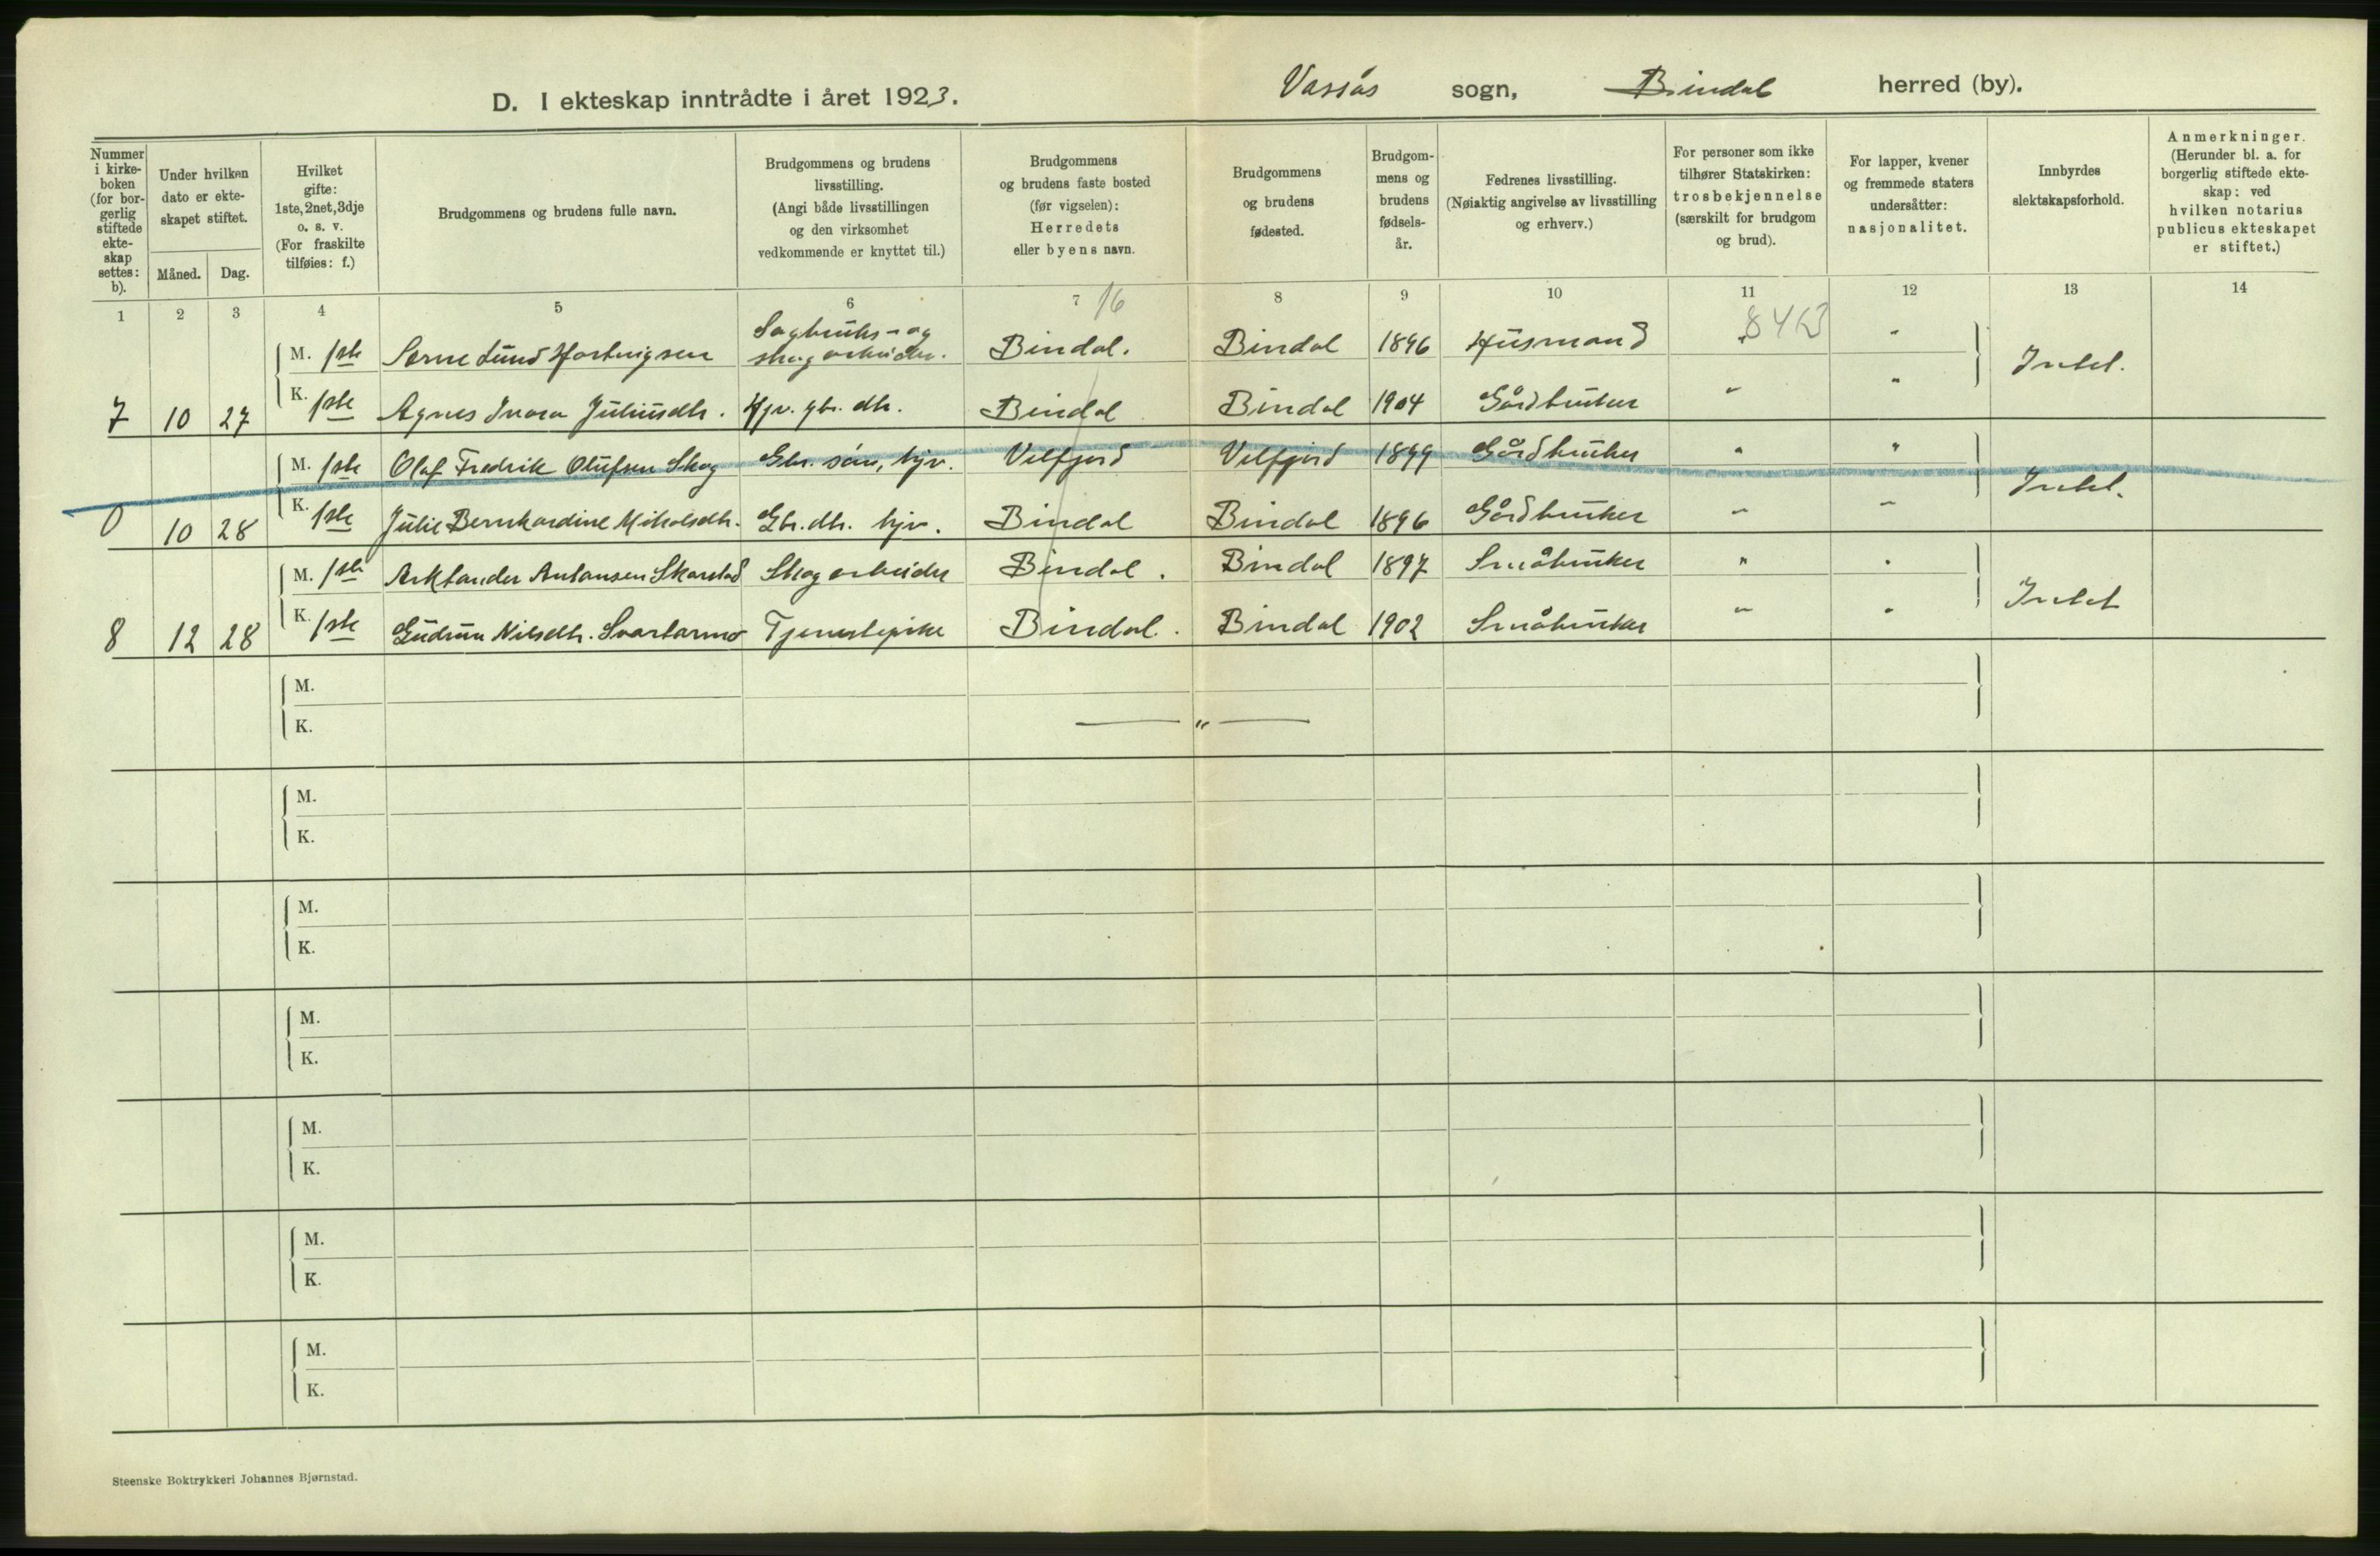 D. I ekteskap inntrådte i året 1923. Vassås sogn, Bindal herred (by).
Nummer i kirkeboken (for borgerlig stiftede ekteskap settes: b).
Under hvilken dato er ekteskapet stiftet.
Måned. Dag.
Hvilket gifte: 1ste, 2net, 3dje o. s. v. (For fraskilte tilføies: f.)
Brudgommens og brudens fulle navn.
Brudgommens og brudens livsstilling. (Angi både livsstillingen og den virksomhet vedkommende er knyttet til.)
Brudgommens og brudens faste bosted (før vigselen): Herredets eller byens navn.
Brudgommens og brudens fødested.
Brudgommens og brudens fødselsår.
Fedrenes livsstilling. (Nøiaktig angivelse av livsstilling og erhverv.)
For personer som ikke tilhører Statskirken: trosbekjennelse (særskilt for brudgom og brud).
For lapper, kvener og fremmede staters undersåtter: nasjonalitet.
Innbyrdes slektskapsforhold.
Anmerkninger. (Herunder bl. a. for borgerlig stiftede ekteskap: ved hvilken notarius publicus ekteskapet er stiftet.)
1 2 3 4 5 6 7 16 8 9 10 11 12 13 14
8463
M. 1ste Lund Hartvigsen Sagbruks- og skogarbeider. Bindal. Bindal 1896 Husmand " Intet.
7 10 27 K. 1ste Agnes Ivara Juliusdtr. Hjv. gbr. dtr. Bindal Bindal 1904 Gårdbruker " "
M. 1ste Olaf Fredrik Olufsen Skog Gbr. søn, hjv. Velfjord Velfjord 1899 Gårdbruker " " Intet.
0 10 28 K. 1ste Julie Bernhardine Mikalsdtr. Gbr. dtr. hjv. Bindal Bindal 1896 Gårdbruker " "
M. 1ste Arktander Antonsen Skarstad Skogarbeider Bindal. Bindal 1897 Småbruker " " Intet
8 12 28 K. 1ste Gudrun Nilsdtr. Svartarmo Tjenestepike Bindal. Bindal 1902 Småbruker " "
M.
K. — " —
M.
K.
M.
K.
M.
K.
M.
K.
M.
K.
M.
K.
Steenske Boktrykkeri Johannes Bjørnstad.